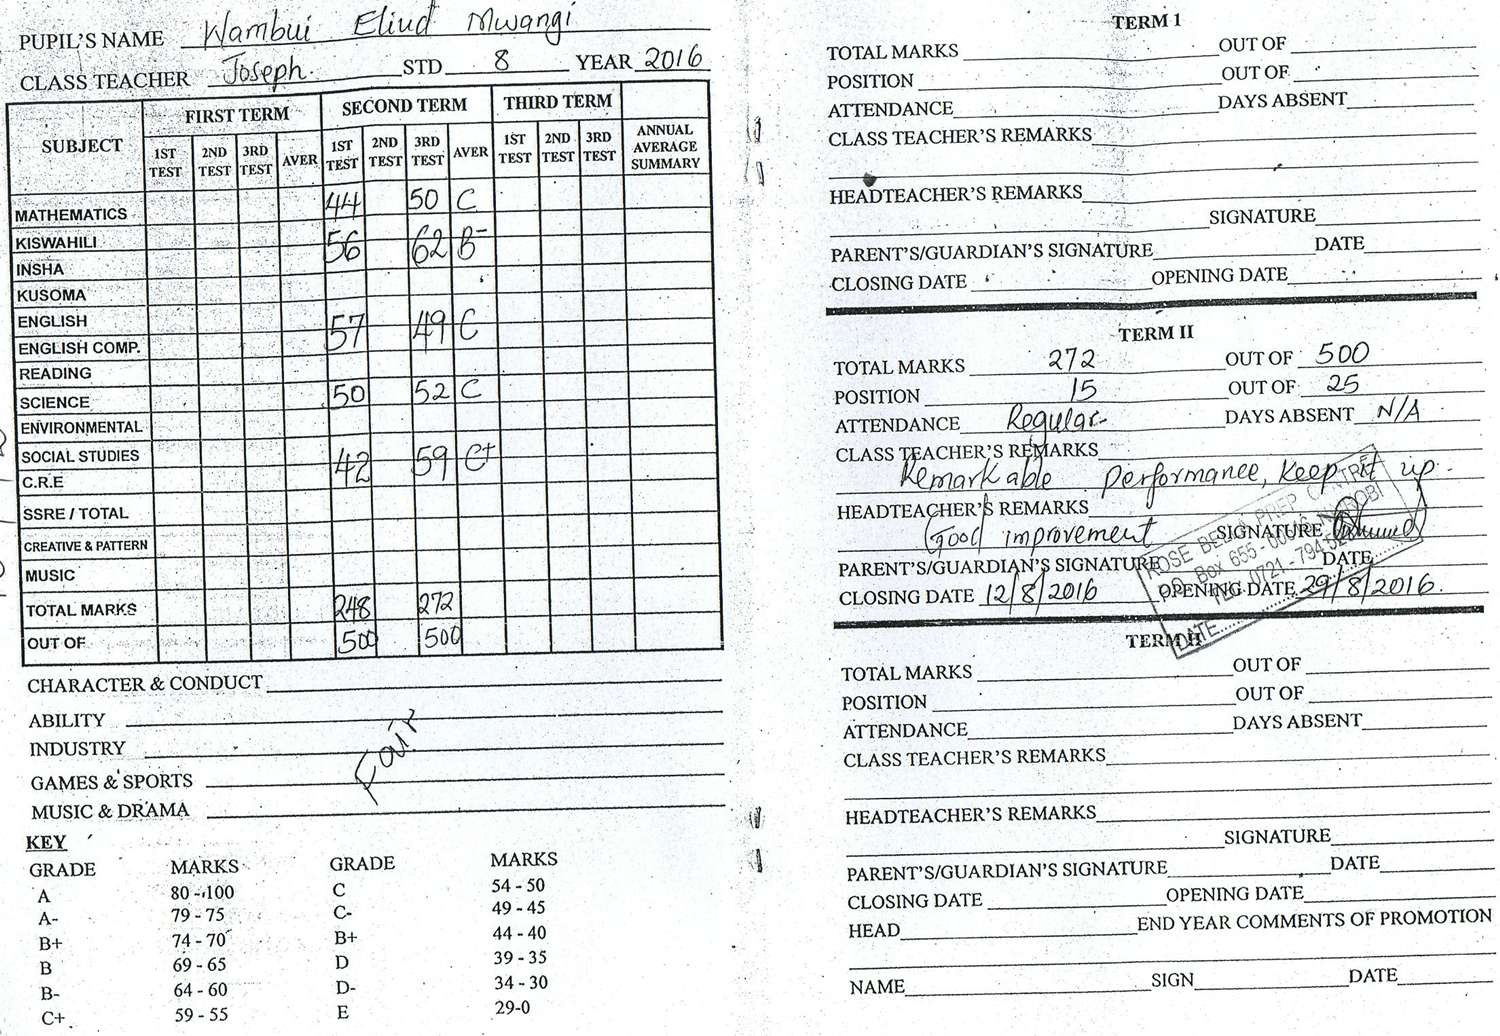 PUPIL'S NAME Wambui Eliud Mwangi
CLASS TEACHER Joseph. STD 8 YEAR 2016
SUBJECT FIRST TERM SECOND TERM THIRD TERM ANNUAL AVERAGE SUMMARY
1ST TEST 2ND TEST 3RD TEST AVER 1ST TEST 2ND TEST 3RD TEST AVER 1ST TEST 2ND TEST 3RD TEST
MATHEMATICS 44 50 C
KISWAHILI 56 62 B-
INSHA
KUSOMA
ENGLISH 57 49 C
ENGLISH COMP.
READING
SCIENCE 50 52 C
ENVIRONMENTAL
SOCIAL STUDIES 42 59 C+
C.R.E
SSRE / TOTAL
CREATIVE & PATTERN
MUSIC
TOTAL MARKS 248 272
OUT OF 500 500
CHARACTER & CONDUCT
ABILITY
INDUSTRY Fair
GAMES & SPORTS
MUSIC & DRAMA
KEY
GRADE MARKS GRADE MARKS
A 80 - 100 C 54 - 50
A- 79 - 75 C- 49 - 45
B+ 74 - 70 B+ 44 - 40
B 69 - 65 D 39 - 35
B- 64 - 60 D- 34 - 30
C+ 59 - 55 E 29-0
TERM 1
TOTAL MARKS OUT OF
POSITION OUT OF
ATTENDANCE DAYS ABSENT
CLASS TEACHER'S REMARKS
HEADTEACHER'S REMARKS
SIGNATURE
PARENT'S/GUARDIAN'S SIGNATURE DATE
CLOSING DATE OPENING DATE
TERM II
TOTAL MARKS 272 OUT OF 500
POSITION 15 OUT OF 25
ATTENDANCE Regular. DAYS ABSENT N/A
CLASS TEACHER'S REMARKS
Remarkable performance, keep it up.
HEADTEACHER'S REMARKS
Good improvement SIGNATURE
PARENT'S/GUARDIAN'S SIGNATURE DATE
CLOSING DATE 12/8/2016 OPENING DATE 29/8/2016.
ROSE BELLA PREP CENTRE
P.O. Box 655 NAIROBI
TEL: 0721 - 794
DATE
TERM II
TOTAL MARKS OUT OF
POSITION OUT OF
ATTENDANCE DAYS ABSENT
CLASS TEACHER'S REMARKS
HEADTEACHER'S REMARKS
SIGNATURE
PARENT'S/GUARDIAN'S SIGNATURE DATE
CLOSING DATE OPENING DATE
HEAD END YEAR COMMENTS OF PROMOTION
NAME SIGN DATE